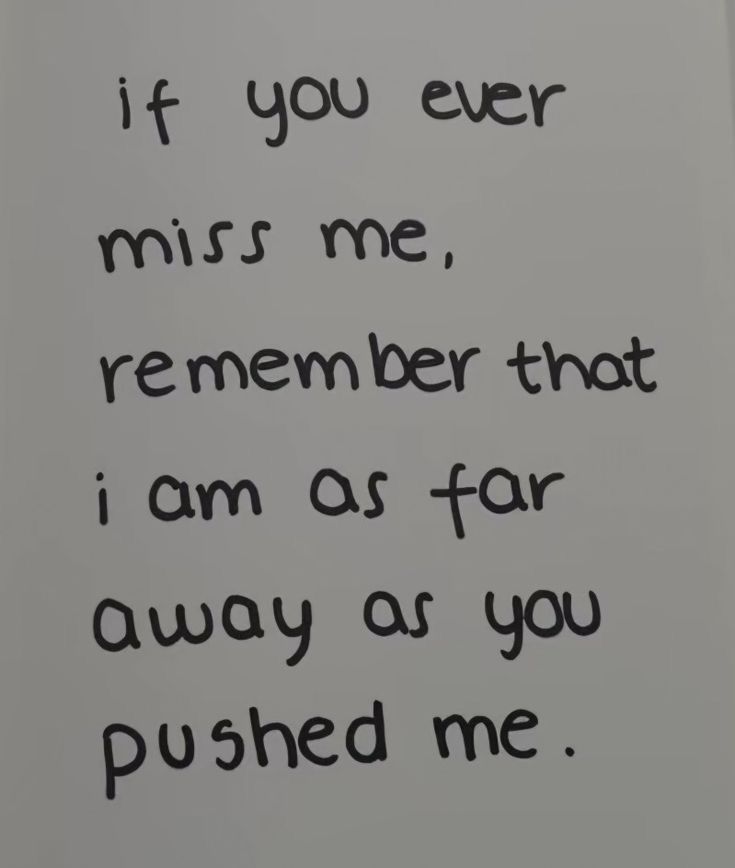 if you ever
miss me,
remember that
i am as far
away as you
pushed me.